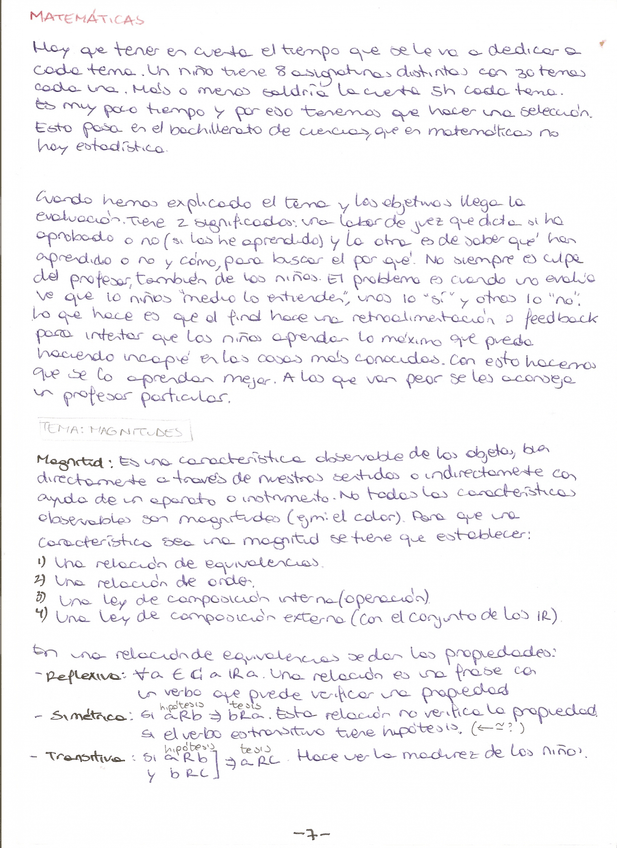 MATEMÁTICAS
Hay que tener en cuenta el tiempo que se le va a dedicar a
cada tema. Un niño tiene 8 asignaturas distintas con 30 temas
cada una. Más o menos saldría la cuenta 5h cada tema.
Es muy poco tiempo y por eso tenemos que hacer una selección.
Esto pasa en el bachillerato de ciencias, que en matemáticas no
hay estadística.
Cuando hemos explicado el tema y los objetivos llega la
evaluación. Tiene 2 significados: una labor de juez que dicta si ha
aprobado o no (si los he aprendido) y la otra es de saber qué han
aprendido o no y cómo, para buscar el por qué. No siempre es culpa
del profesor, también de los niños. El problema es cuando uno evalúa
ve que lo niños "medio lo entienden", unos lo "sí" y otros lo "no".
Lo que hace es que al final hace una retroalimentación o feedback
para intentar que los niños aprendan lo máximo que pueda
haciendo incapié en las cosas más conocidas. Con esto hacemos
que se lo aprendan mejor. A los que van peor se les aconseja
un profesor particular.
TEMA: MAGNITUDES
Magnitud: Es una característica observable de los objetos, bien
directamente a través de nuestros sentidos o indirectamente con
ayuda de un aparato o instrumento. No todas las características
observables son magnitudes (ejm: el color). Para que una
característica sea una magnitud se tiene que establecer:
1) Una relación de equivalencias.
2) Una relación de orden.
3) Una ley de composición interna (operación)
4) Una ley de composición externa (con el conjunto de los IR).
En una relación de equivalencias se dan las propiedades:
- Reflexiva: ∀a ∈ C; a R a. Una relación es una frase con
un verbo que puede verificar una propiedad
- Simétrica: si aRb ⇒ bRa. Esta relación no verifica la propiedad
hipótesis tesis
si el verbo es transitivo tiene hipótesis. (←≃?)
- Transitiva: si aRb ⇒ aRC. Hace ver la madurez de los niños.
hipótesis tesis
y bRC
-7-